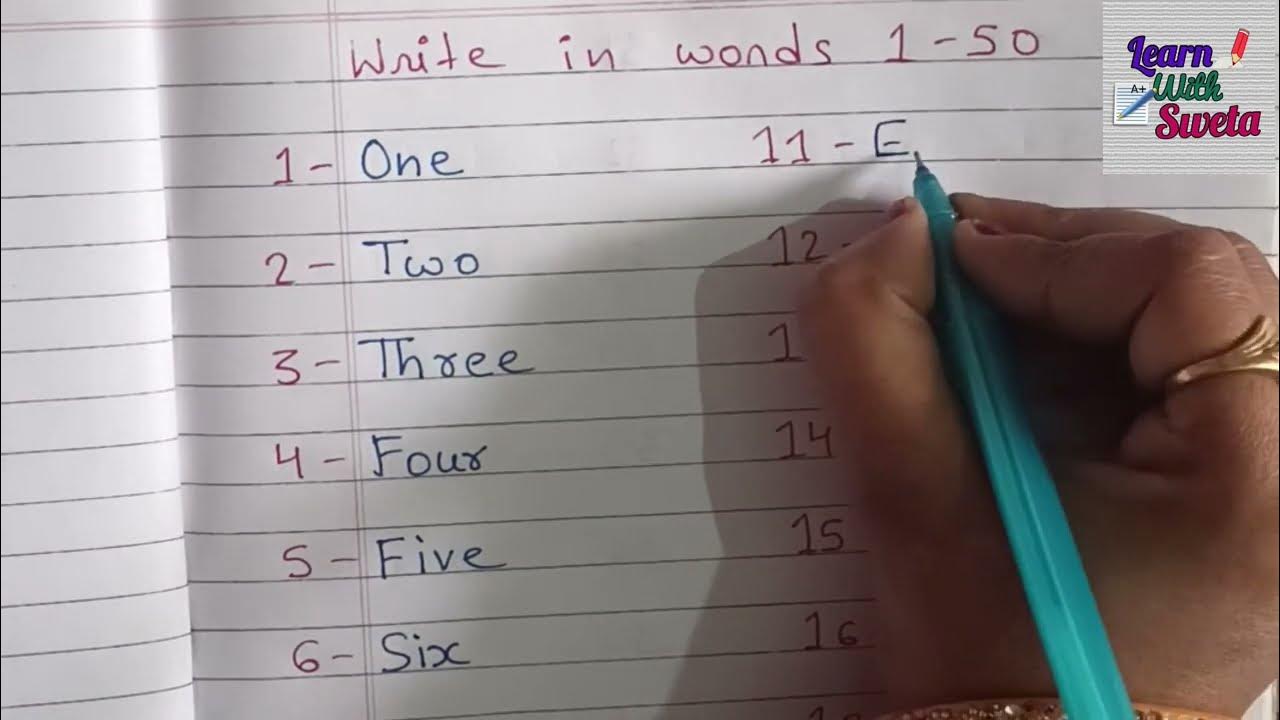 Write in words 1-50
1- One
2- Two
3- Three
4- Four
5- Five
6- Six
11- E
12-
1
14
15
16
Learn
With
Sweta
A+